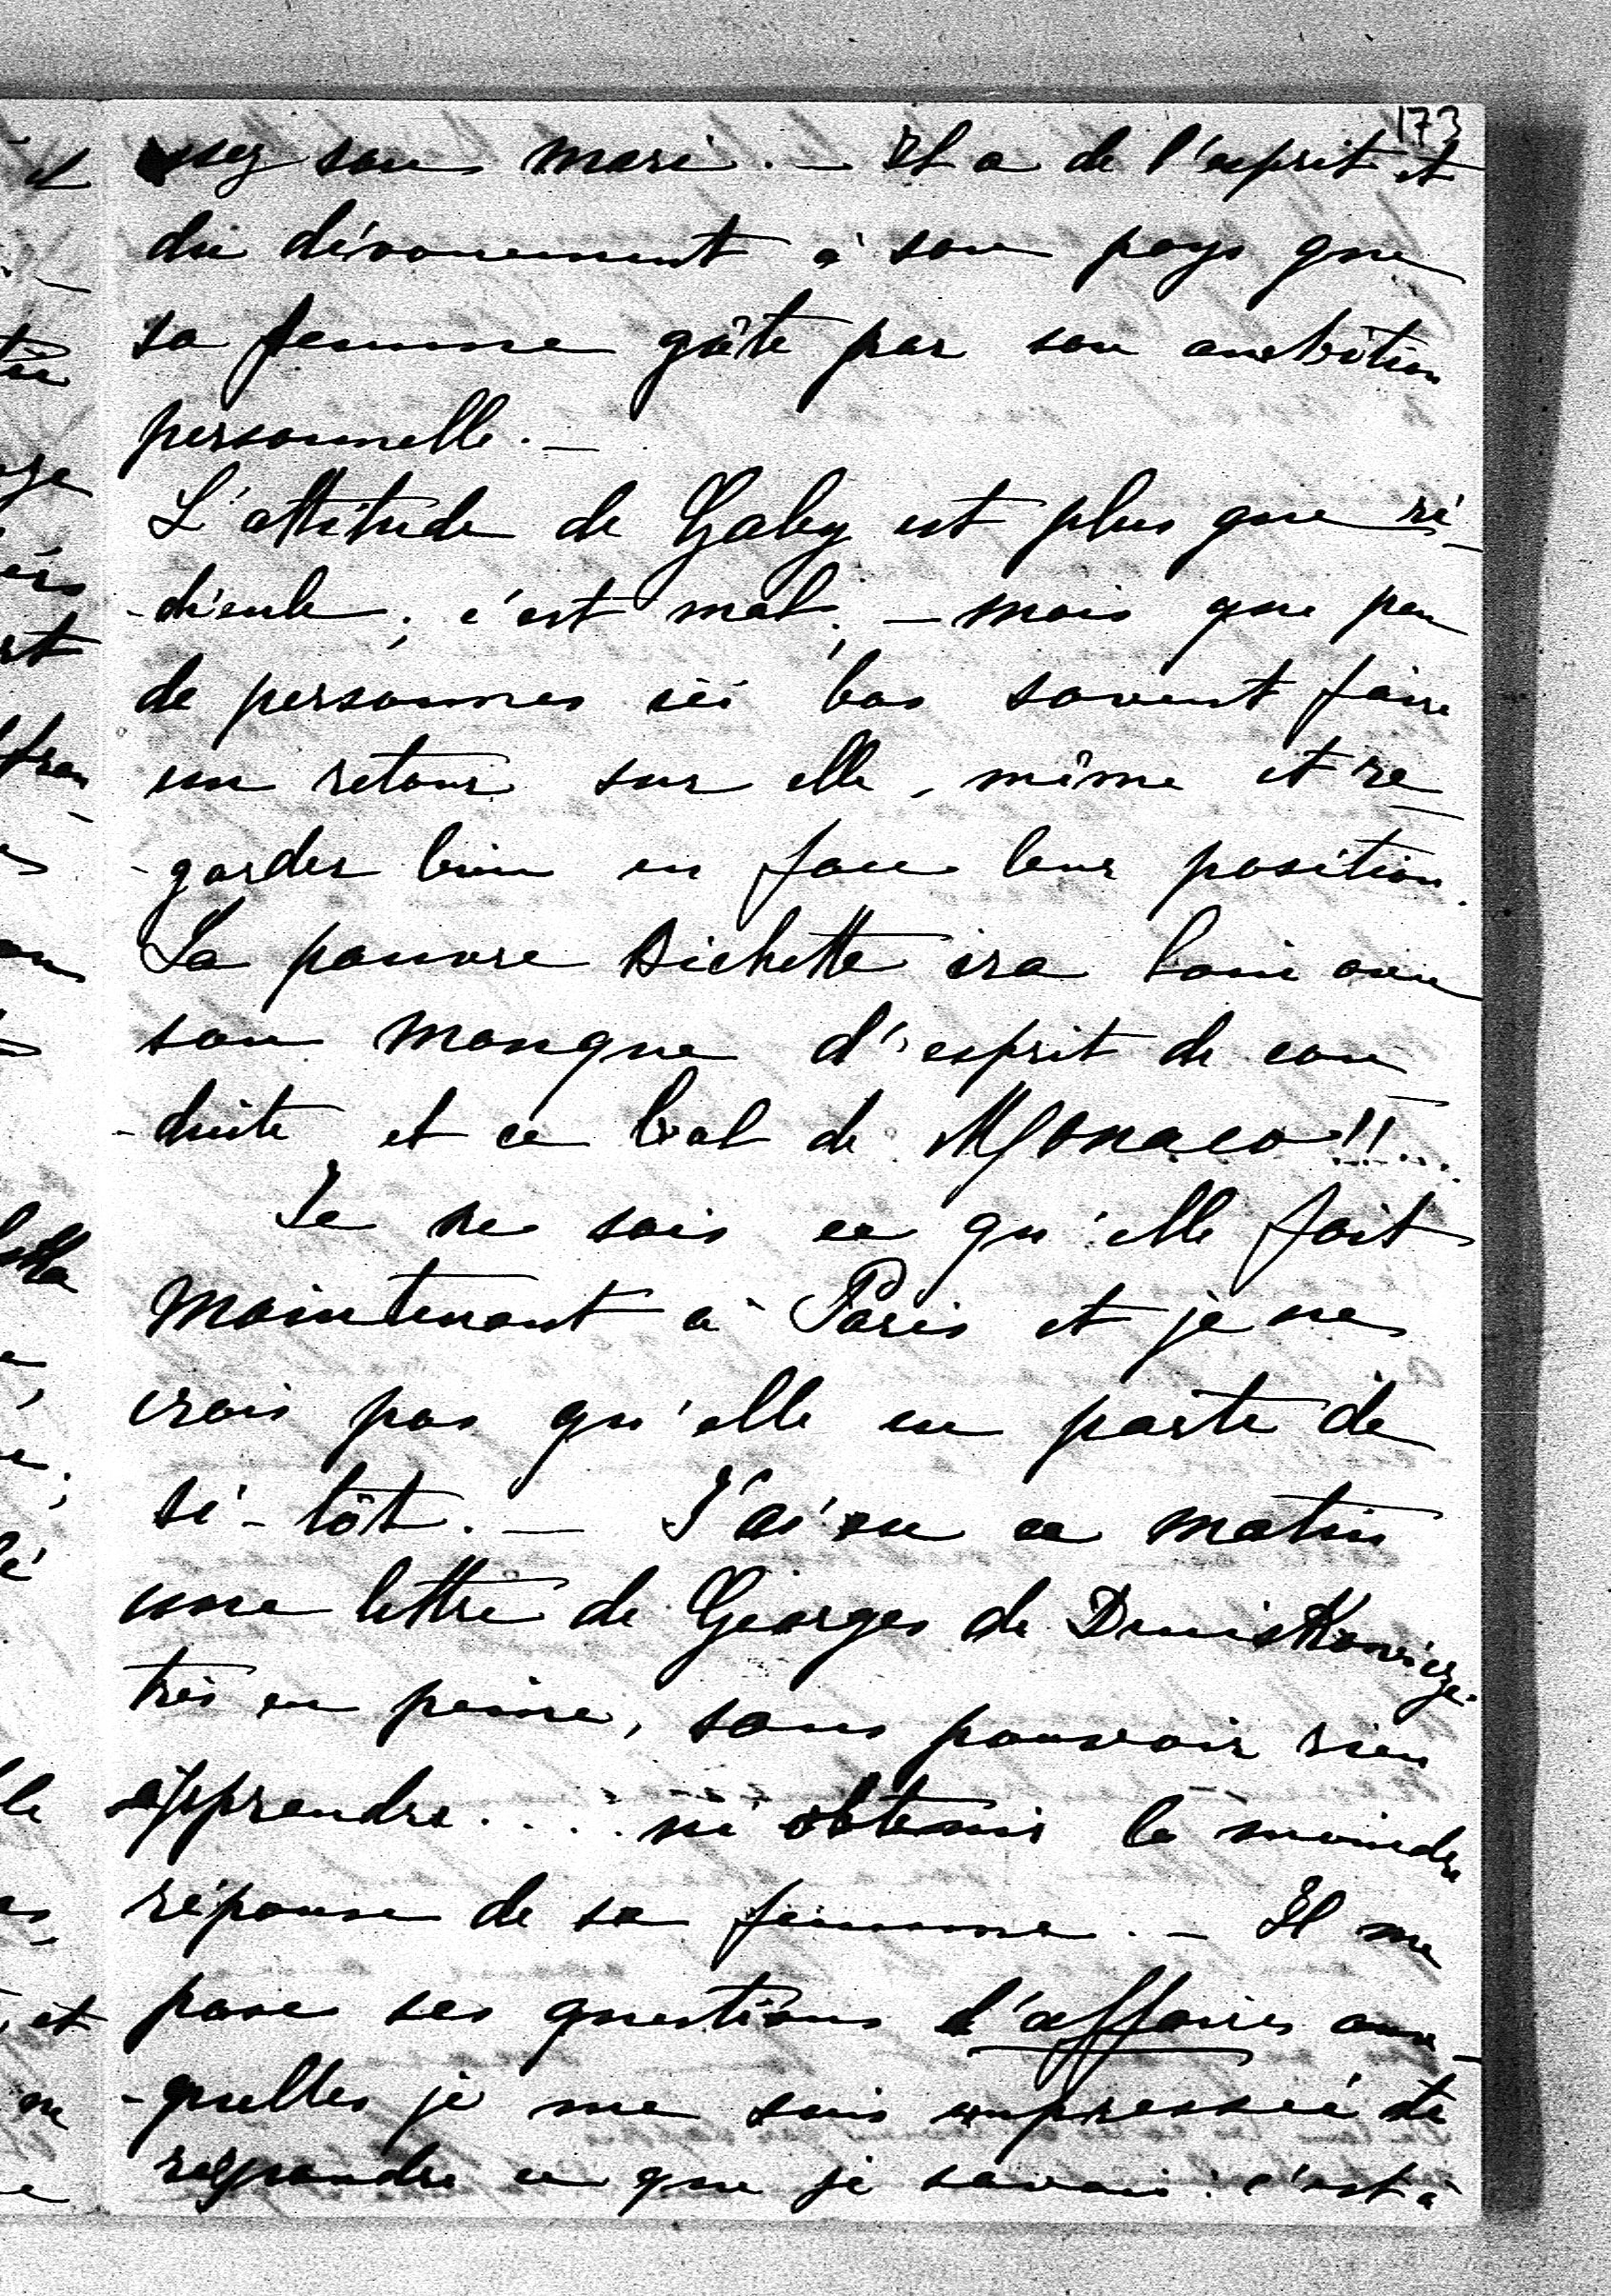 173
assez son mari. — Il a de l'esprit et
du dévouement à son pays que
sa femme gâte par son ambition
personnelle. —
L'attitude de Gaby est plus que ri-
-dicule ; c'est mal ; — mais que peu
de personnes ici bas savent faire
un retour sur elle-même et re-
-garder bien en face leur position.
La pauvre Bichette ira loin avec
son manque d'esprit de con-
-duite et ce bal de Monaco !!...
Je ne sais ce qu'elle fait
maintenant à Paris et je ne
crois pas qu'elle en parte de
si-tôt. — J'ai eu ce matin
une lettre de Georges de
très en peine, sans pouvoir rien
apprendre.... ni obtenir la moindre
réponse de sa femme. — Il me
pose ses questions d'affaires aux-
-quelles je me suis empressée de
répondre ce que je savais : c'est à